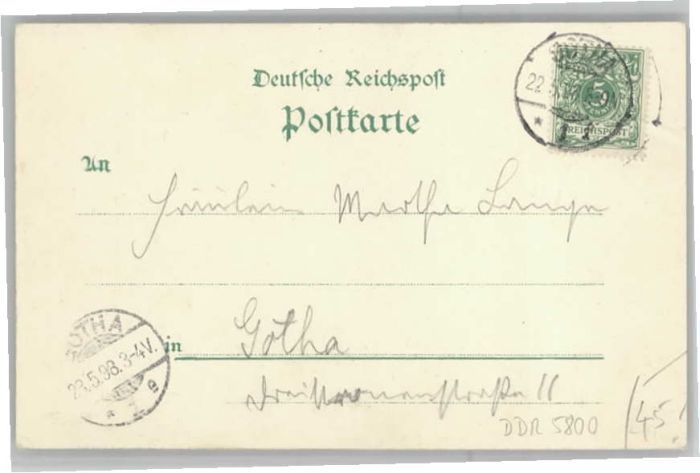 Deutsche Reichspost
Postkarte
GOTHA
22
5
REICHSPOST
An
Fräulein Martha Lange
in Gotha
GOTHA
23.5.98.3-4V.
DDR 5800
45